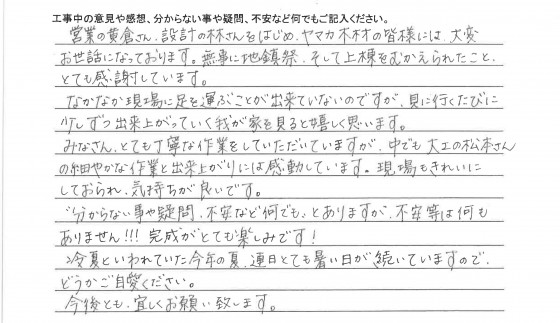 工事中の意見や感想、分からない事や疑問、不安など何でもご記入ください。
営業の黄倉さん、設計の林さんをはじめ、ヤマカ木材の皆様には、大変
お世話になっております。無事に地鎮祭、そして上棟をむかえられたこと、
とても感謝しています。
なかなか現場に足を運ぶことが出来ていないのですが、見に行くたびに
少しずつ出来上がっていく我が家を見ると嬉しく思います。
みなさん、とても丁寧な作業をしていただいていますが、中でも大工の松本さん
の細やかな作業と出来上がりには感動しています。現場もきれいに
しておられ、気持ちが良いです。
"分からない事や疑問、不安など何でも"とありますが、不安等は何も
ありません!!! 完成がとても楽しみです!
冷夏といわれていた今年の夏、連日とても暑い日が続いていますので、
どうかご自愛ください。
今後とも、宜しくお願い致します。